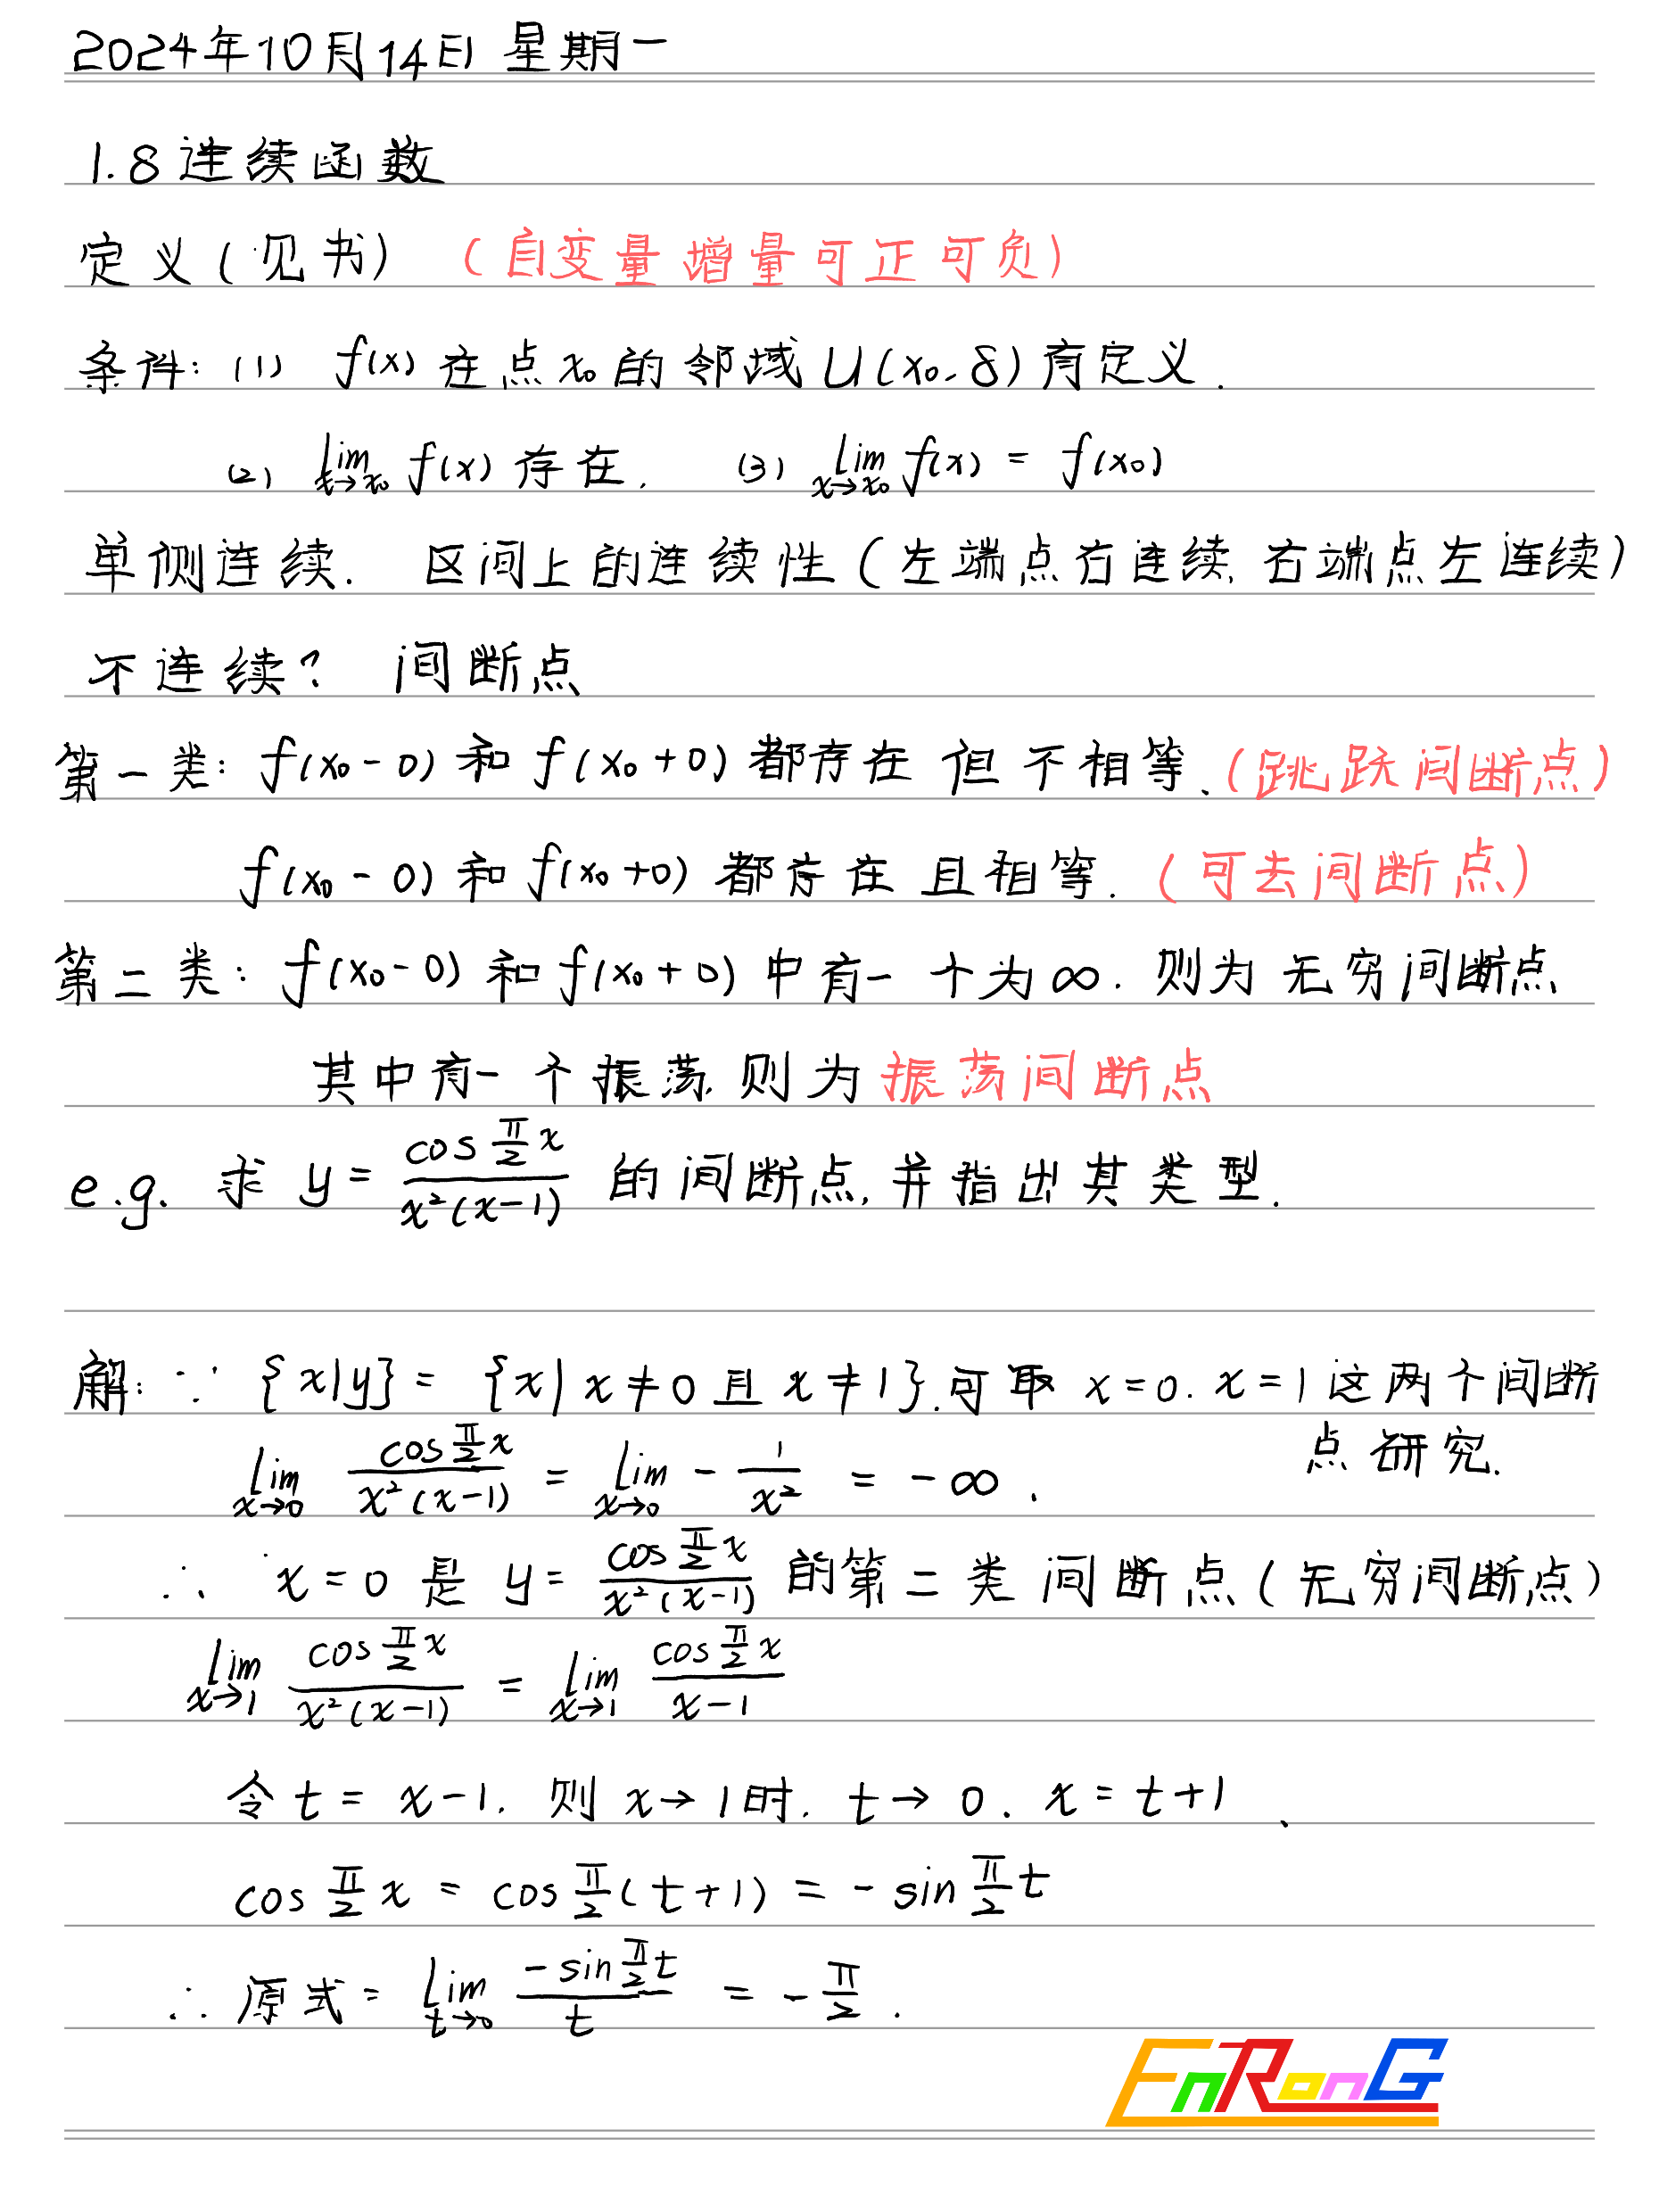 2024年10月14日 星期一
1.8 连续函数
定义(见书) (自变量增量可正可负)
条件: (1) f(x) 在点 x₀ 的邻域 U(x₀, δ) 有定义.
(2) lim_{x→x₀} f(x) 存在. (3) lim_{x→x₀} f(x) = f(x₀)
单侧连续. 区间上的连续性 (左端点右连续, 右端点左连续)
不连续? 间断点
第一类: f(x₀-0) 和 f(x₀+0) 都存在 但不相等. (跳跃间断点)
f(x₀-0) 和 f(x₀+0) 都存在 且相等. (可去间断点)
第二类: f(x₀-0) 和 f(x₀+0) 中有一个为∞. 则为 无穷间断点
其中有一个振荡, 则为 振荡间断点
e.g. 求 y = cos π/2 x / x²(x-1) 的间断点, 并指出其类型.
解: ∵ {x|y} = {x| x≠0 且 x≠1}. 可取 x=0. x=1 这两个间断
点研究.
lim_{x→0} cos π/2 x / x²(x-1) = lim_{x→0} - 1/x² = -∞.
∴ x=0 是 y = cos π/2 x / x²(x-1) 的第二类间断点 (无穷间断点)
lim_{x→1} cos π/2 x / x²(x-1) = lim_{x→1} cos π/2 x / x-1
令 t = x-1. 则 x→1时. t→0. x = t+1.
cos π/2 x = cos π/2 (t+1) = -sin π/2 t
∴ 原式 = lim_{t→0} -sin π/2 t / t = -π/2.
EnRonG